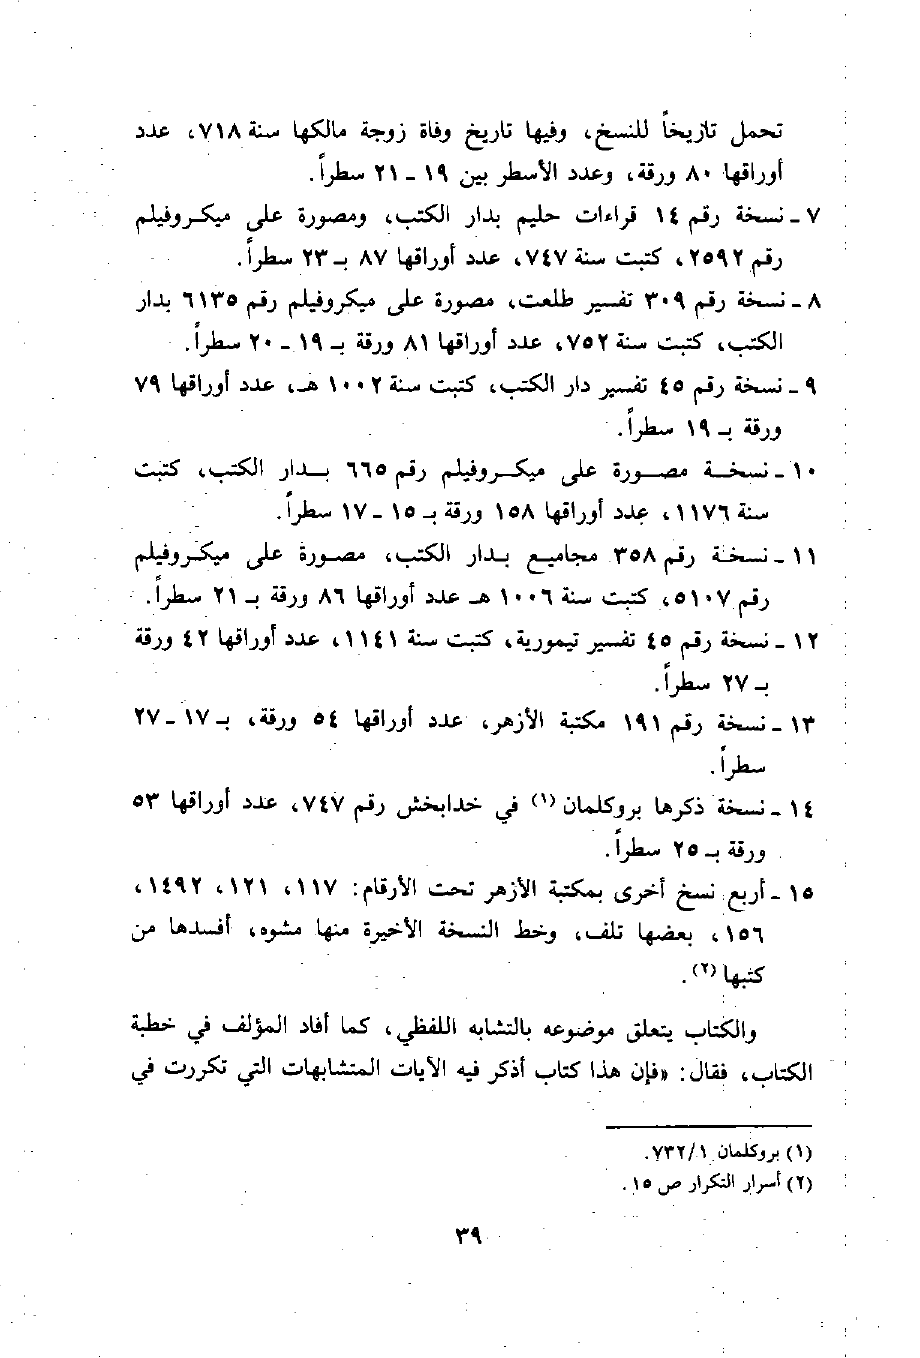 تحمل تاريخاً للنسخ، وفيها تاريخ وفاة زوجة مالكها سنة ٧١٨، عدد
أوراقها ٨٠ ورقة، وعدد الأسطر بين ١٩ ـ ٢١ سطراً.
٧ ـ نسخة رقم ١٤ قراءات حليم بدار الكتب، ومصورة على ميكروفيلم
رقم ٢٥٩٢، كتبت سنة ٧٤٧، عدد أوراقها ٨٧ بـ ٢٣ سطراً.
٨ ـ نسخة رقم ٣٠٩ تفسير طلعت، مصورة على ميكروفيلم رقم ٦١٣٥ بدار
الكتب، كتبت سنة ٧٥٢، عدد أوراقها ٨١ ورقة بـ ١٩ ـ ٢٠ سطراً.
٩ ـ نسخة رقم ٤٥ تفسير دار الكتب، كتبت سنة ١٠٠٢ هـ، عدد أوراقها ٧٩
ورقة بـ ١٩ سطراً.
١٠ ـ نسخة مصورة على ميكروفيلم رقم ٦٦٥ بدار الكتب، كتبت
سنة ١١٧٦، عدد أوراقها ١٥٨ ورقة بـ ١٥ ـ ١٧ سطراً.
١١ ـ نسخة رقم ٣٥٨ مجاميع بدار الكتب، مصورة على ميكروفيلم
رقم ٥١٠٧، كتبت سنة ١٠٠٦ هـ عدد أوراقها ٨٦ ورقة بـ ٢١ سطراً.
١٢ ـ نسخة رقم ٤٥ تفسير تيمورية، كتبت سنة ١١٤١، عدد أوراقها ٤٢ ورقة
بـ ٢٧ سطراً.
١٣ ـ نسخة رقم ١٩١ مكتبة الأزهر، عدد أوراقها ٥٤ ورقة، بـ ١٧ ـ ٢٧
سطراً.
١٤ ـ نسخة ذكرها بروكلمان (١) في خدابخش رقم ٧٤٧، عدد أوراقها ٥٣
ورقة بـ ٢٥ سطراً.
١٥ ـ أربع نسخ أخرى بمكتبة الأزهر تحت الأرقام: ١١٧، ١٢١، ١٤٩٢،
١٥٦، بعضها تلف، وخط النسخة الأخيرة منها مشوه، أفسدها من
كتبها (٢).
والكتاب يتعلق موضوعه بالتشابه اللفظي، كما أفاد المؤلف في خطبة
الكتاب، فقال: «فإن هذا كتاب أذكر فيه الآيات المتشابهات التي تكررت في
(١) بروكلمان ٧٣٢/١.
(٢) أسرار التكرار ص ١٥.
٣٩